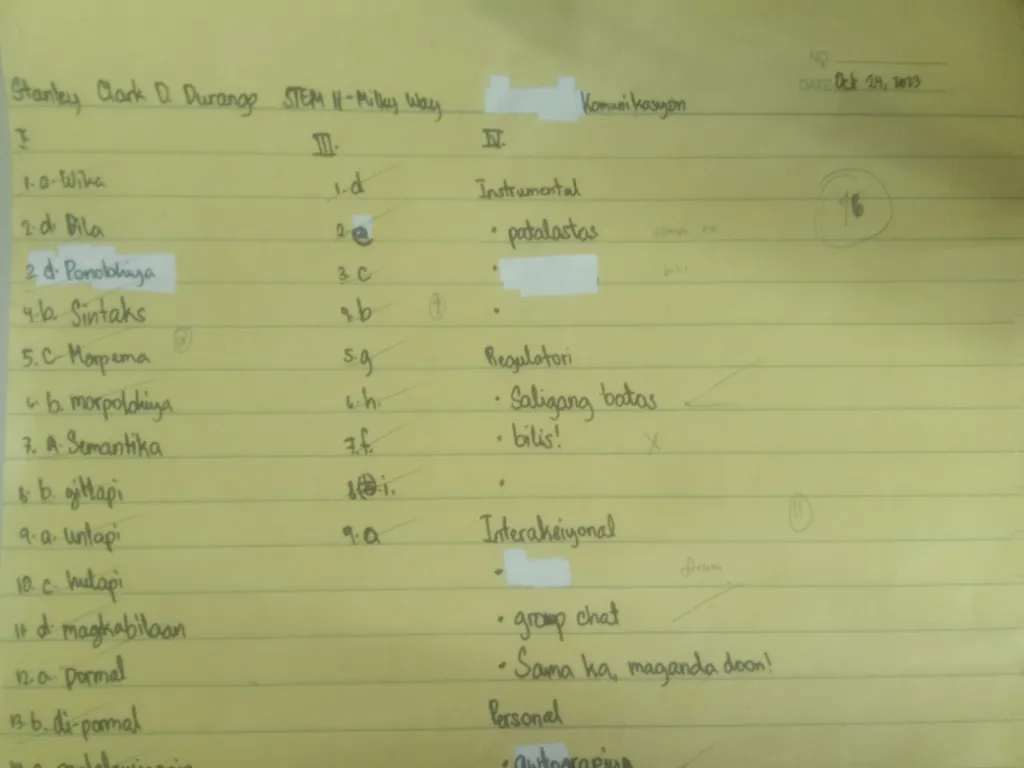 NO
DATE Oct 24, 2023
Stanley Clark D. Durango STEM 11-Milky Way Komunikasyon
I
1. a. Wika
2. d. Bila
3. d. Ponolohiya
4. b. Sintaks
5. C Morpema
6. b. morpolohiya
7. A. Semantika
8. b. gitlapi
9. a. unlapi
10. c. hulapi
11. d. magkabilaan
12. a. pormal
13. b. di-pormal
III.
1. d
2. e
3. c
4. b
5. g
6. h.
7. f.
8. i.
9. a
IV.
Instrumental
• patalastas
•
•
Regulatori
• Saligang batas
• bilis!
•
Interaksiyonal
•
• group chat
• Sama ka, maganda doon!
Personal
• awtograpiya
16
9
11